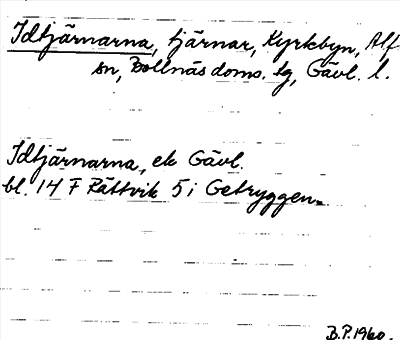 Idtjärnarna, tjärnar, Kyrkbyn, Alf-
sn, Bollnäs doms. tg, Gävl. l.
Idtjärnarna, ek Gävl.
bl. 14 F Rättvik 5 i Getryggen.
B.P. 1960.